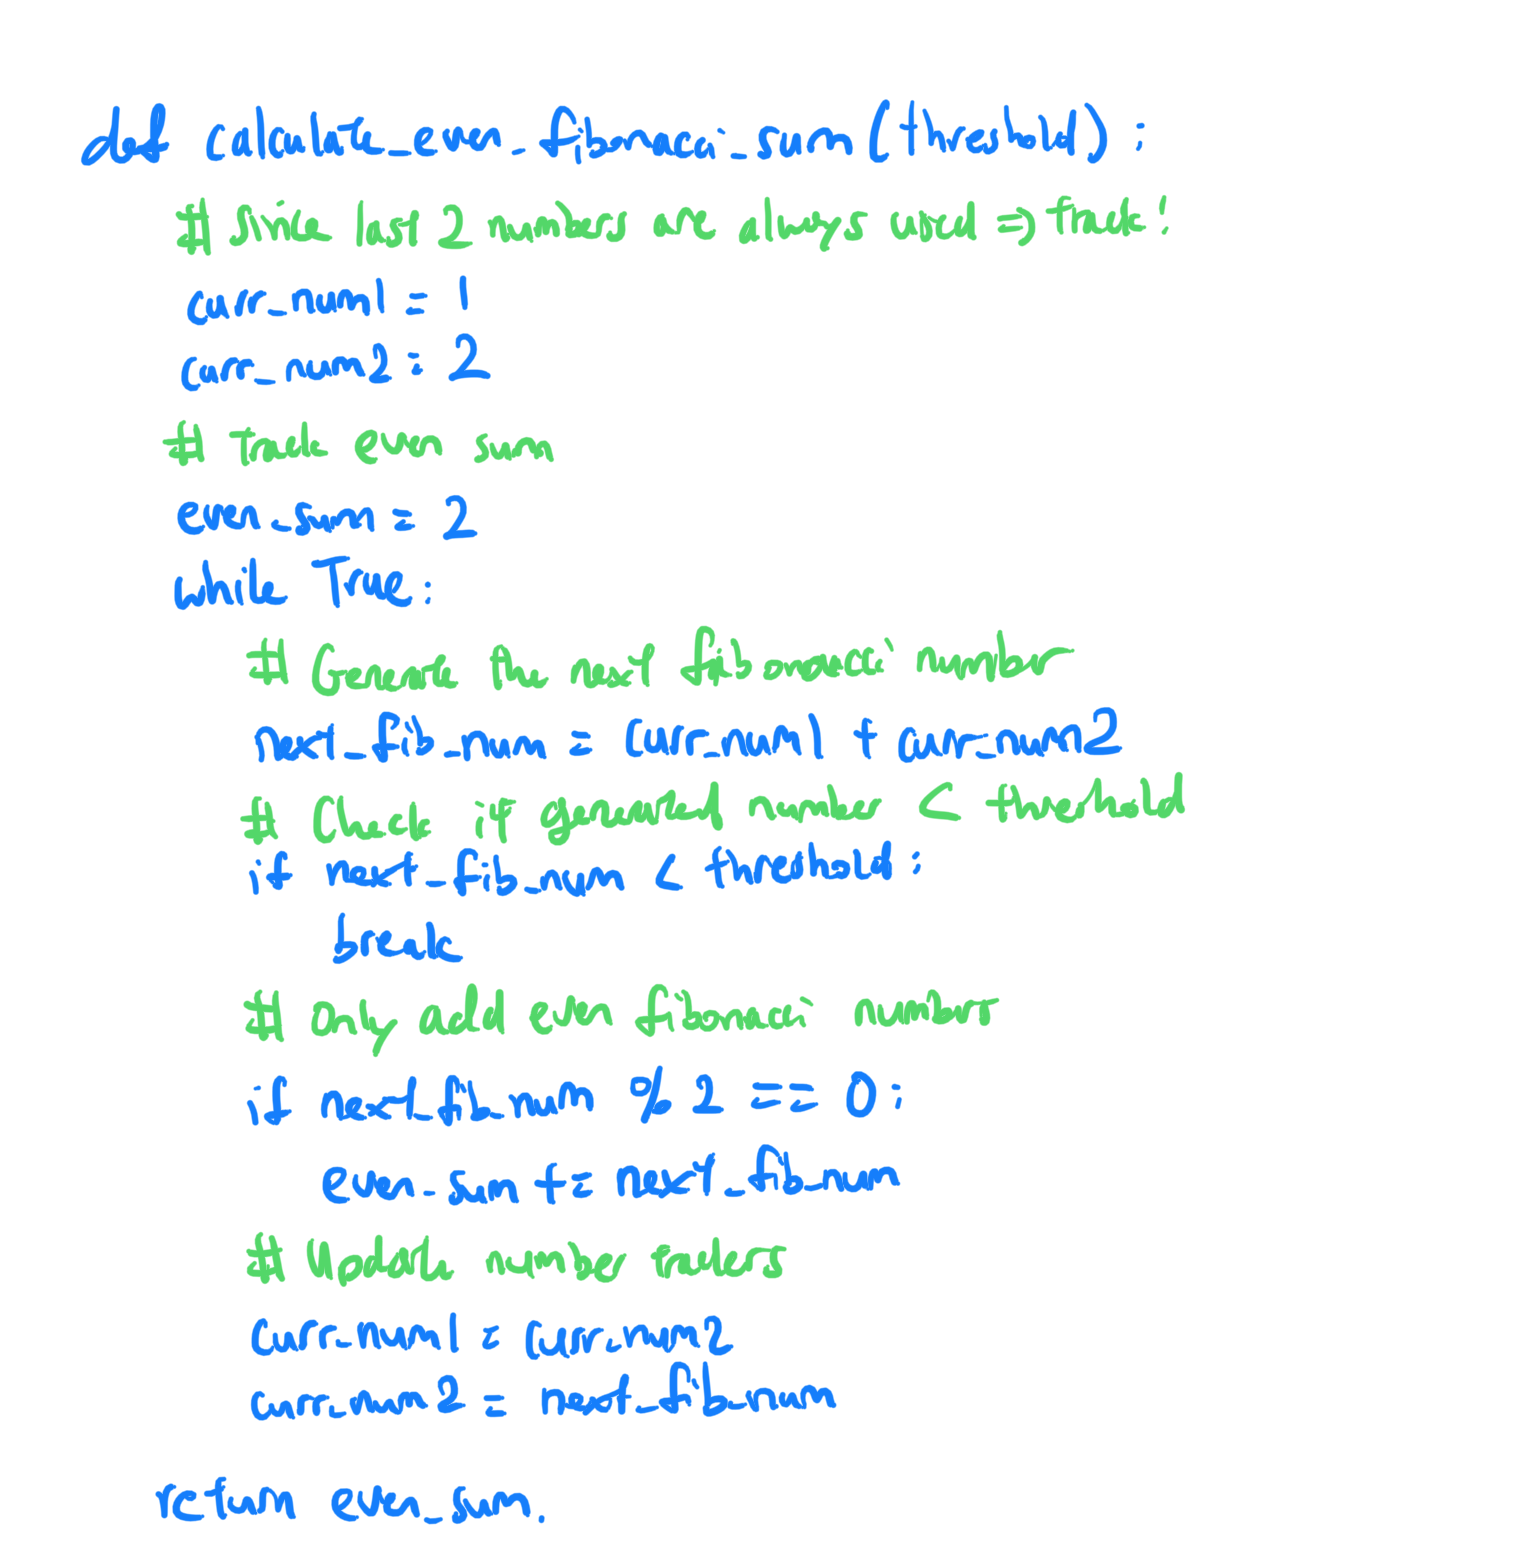 def calculate_even_fibonacci_sum(threshold):
# Since last 2 numbers are always used => track!
curr_num1 = 1
curr_num2 = 2
# Track even sum
even_sum = 2
while True:
# Generate the next fibonacci number
next_fib_num = curr_num1 + curr_num2
# Check if generated number < threshold
if next_fib_num < threshold:
break
# Only add even fibonacci numbers
if next_fib_num % 2 == 0:
even_sum += next_fib_num
# Update number trackers
curr_num1 = curr_num2
curr_num2 = next_fib_num
return even_sum.